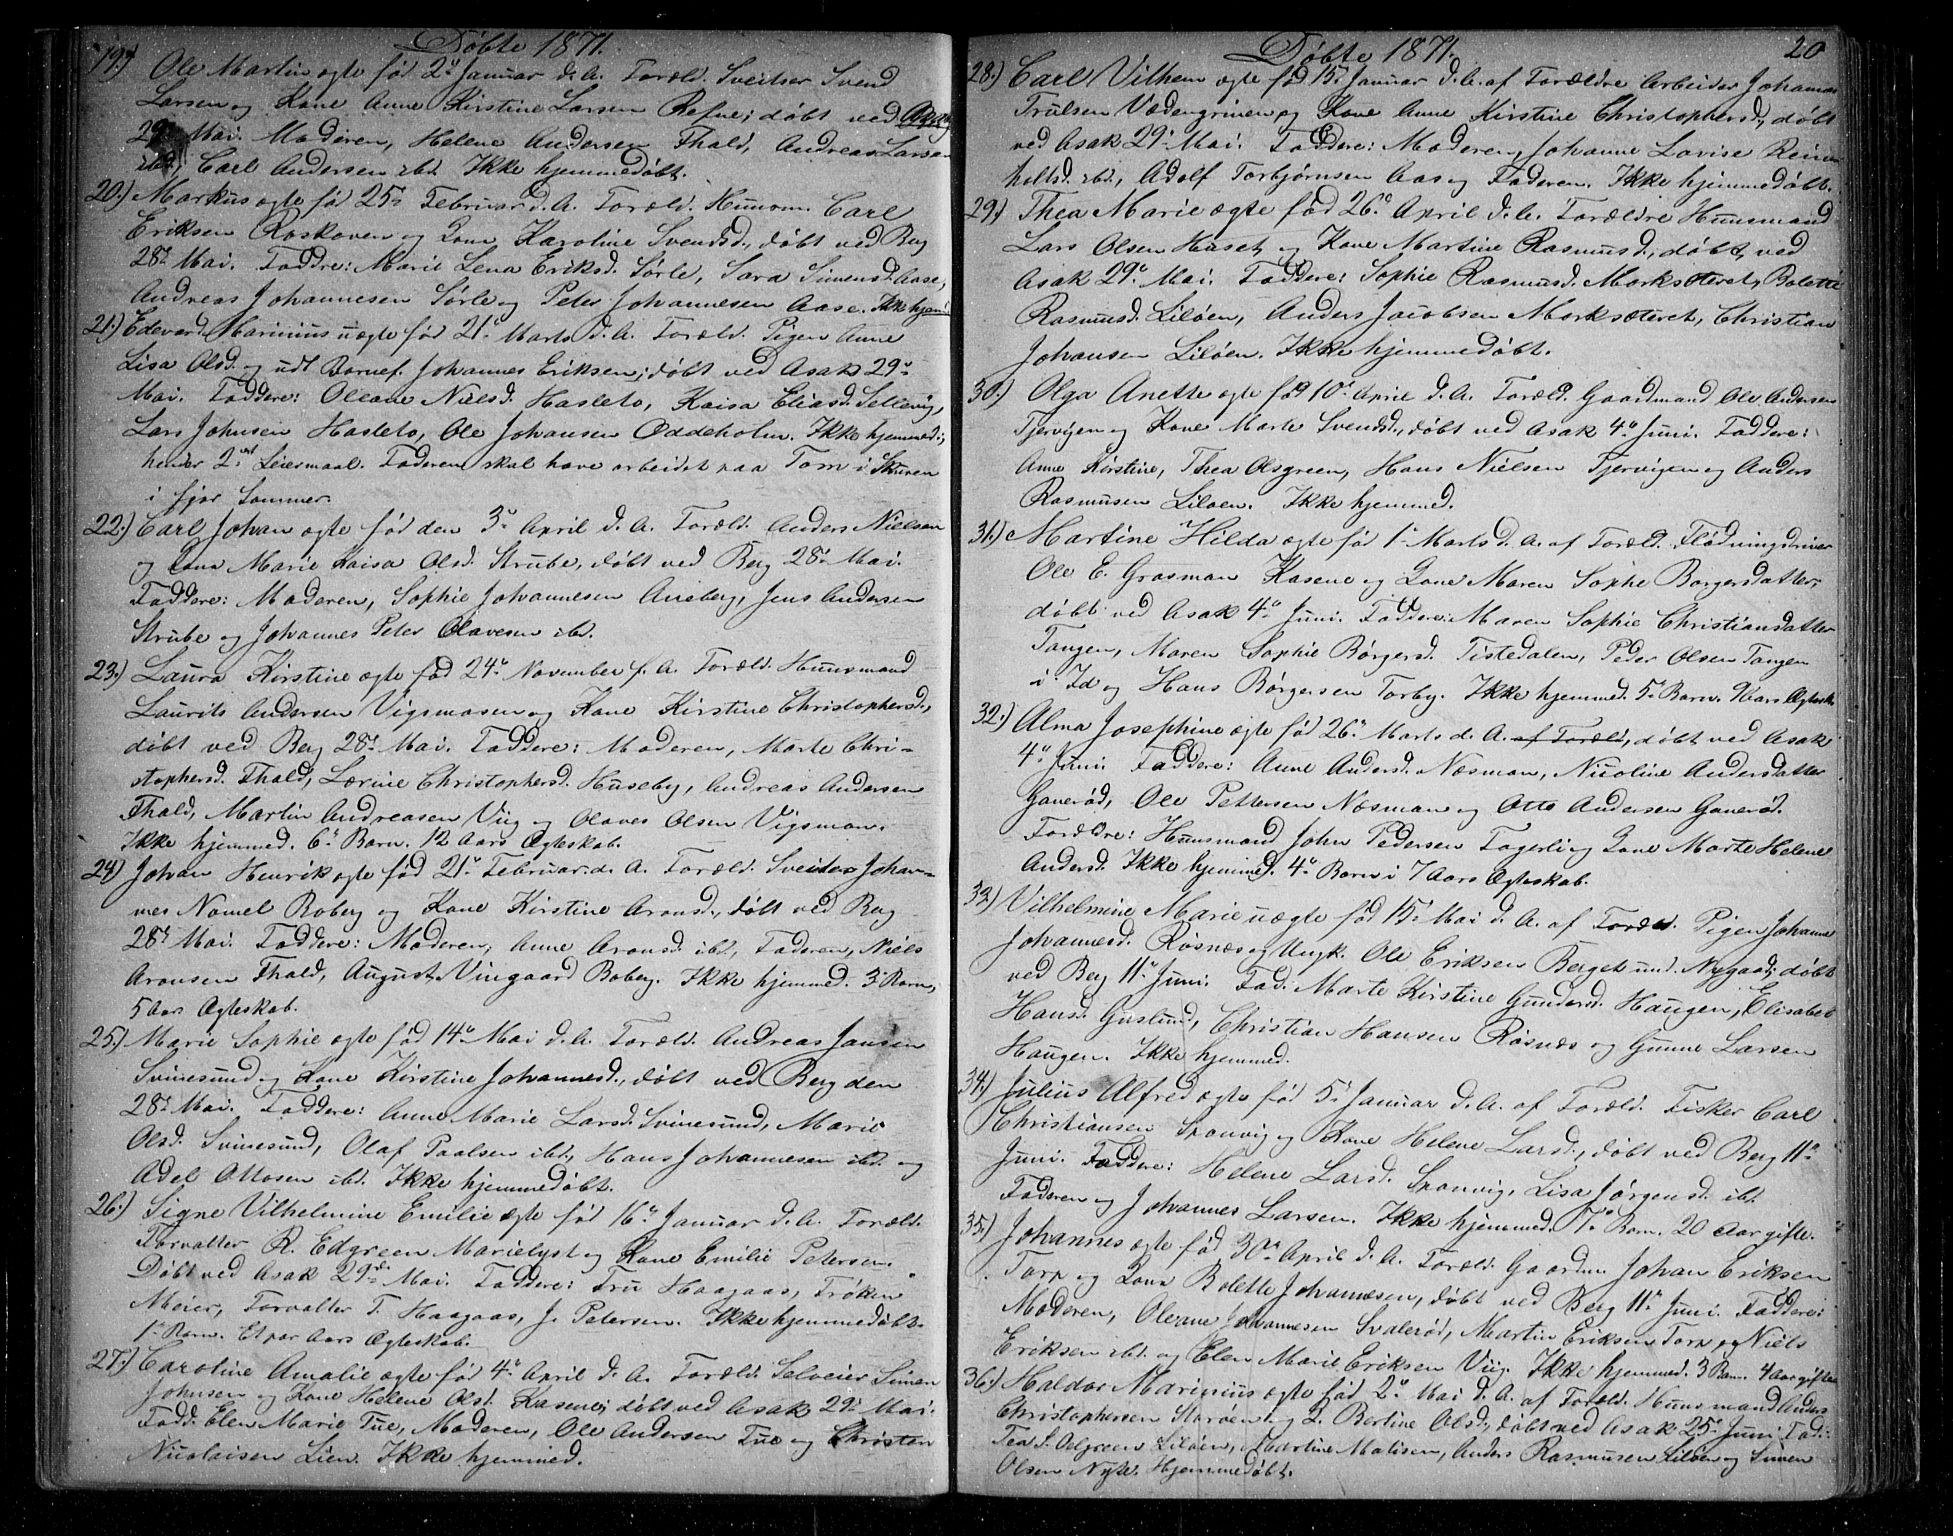 Døbte 1871.
19.) Ole Martin ægte fød 2º Januar d. A. Foræld. Sveitser Svend
Larsen og Kone Anne Kirstine Larsen Refne; døbt ved Asak
29º Mai. Moderen, Helene Andersen Thald, Andreas Larsen
ibd, Carl Andersen ibd. Ikke hjemmedøbt.
20.) Markus ægte fød 25º Februar d. A. Foræld. Huusm. Carl
Eriksen Roskoven og Kone Karoline Svendsd., døbt ved Berg
28º Mai. Faddre: Marie Lena Eriksd. Sørle, Sara Simensd. Aase,
Andreas Johannesen Sørle og Peter Johannesen Aase. Ikke hjem:
21.) Edevard Marinius uægte fød 21º Marts d. A. Foræld. Pigen Anne
Lisa Olsd. og udl. Barnef. Johannes Eriksen; døbt ved Asak 29º
Mai. Faddere: Oleane Nielsd. Hasleto, Kaisa Eliasd. Sellevig,
Lars Johnsen Hasleto, Ole Johansen Oddeholm. Ikke hjemmed.;
hendes 2det Leiermaal. Faderen skal have arbeidet paa Tom i Skuren
i fjor Sommer.
22.) Carl Johan ægte fød den 3º April d. A. Foræld. Anders Nielsen
og Kone Marie Kaisa Olsd. Strube, døbt ved Berg 28º Mai.
Faddere: Moderen, Sophie Johannesen Aneberg, Jens Andersen
Strube og Johannes Peter Olavesen ibd.
23.) Laura Kirstine ægte fød 24º November f. A. Foræld. Huusmand
Laurits Andersen Vigsmosen og Kone Kirstine Christophersd.,
døbt ved Berg 28º Mai. Faddere: Moderen, Marte Chri-
stophersd. Thald, Lærine Christophersd. Huseby, Andreas Andersen
Thald, Martin Andreasen Viig og Olaves Olsen Vigsmosen.
Ikke hjemmed. 6º Barn. 12 Aars Ægteskab.
24.) Johan Henrik ægte fød 21º Februar d. A. Foræld. Sveitser Johan-
nes Nomel Roberg og Kone Kirstine Aronsd., døbt ved Berg
28º Mai. Faddere: Moderen, Anne Aronsd. ibd., Faderen, Niels
Aronsen Thald, August Viingaard Roberg. Ikke hjemmed. 3º Barn,
5 Aars Ægteskab.
25.) Marie Sophie ægte fød 14º Mai d. A. Foræld. Andreas Jansen
Svinesund og Kone Kirstine Johannesd., døbt ved Berg den
28º Mai. Faddere: Anne Marie Larsd. Svinesund, Marie
Olsd. Svinesund, Olaf Paalsen ibd., Hans Johannesen ibd. og
Adel Ottosen ibd. Ikke hjemmedøbt.
26.) Signe Vilhelmine Emilie ægte fød 16º Januar d. A. Foræld.
Forvalter R. Edgreen Marielyst og Kone Emilie Petersen.
Døbt ved Asak 29de Mai. Faddere: Fru Haagaas, Frøken
Meier, Forvalter T. Haagaas, J. Petersen. Ikke hjemmedøbt.
1º Barn. Et par Aars Ægteskab.
27.) Caroline Amalie ægte fød 4º April d. A. Foræld. Selveier Simen
Johnsen og Kone Helene Olsd. Kasene; døbt ved Asak 29º Mai.
Fadd. Elen Marie Tue, Moderen, Ole Andersen Tue og Christen
Nicolaisen Lien. Ikke hjemmed.
Døbte 1871. 20
28.) Carl Vilhem ægte fød 15º Januar d. A. af Forældre Arbeider Johannes
Trulsen Vadengrinen og Kone Anne Kirstine Christophersd., døbt
ved Asak 29º Mai. Faddere: Moderen, Johanne Lovise Reinn
holtsd. ibd., Adolf Torbjørnsen Aas og Faderen. Ikke hjemmedøbt.
29.) Thea Marie ægte fød 26º April d. A. Forældre Huusmand
Lars Olsen Huset, og Kone Martine Rasmusd., døbt, ved
Asak 29º Mai. Faddere: Sophie Rasmusd. Morksæteret, Bolette
Rasmusd. Liløen, Anders Jacobsen Morksæteret, Christian
Johansen Liløen. Ikke hjemmedøbt.
30.) Olga Anette ægte fød 10º April d. A. Foræld. Gaardmand Ole Andersen
Tjervigen og Kone Marte Svendsd., døbt ved Asak 4º Juni. Faddere:
Anne Kirstine, Thea Olsgreen, Hans Nielsen Tjervigen og Anders
Rasmusen Liløen. Ikke hjemmed.
31.) Martine Hilda ægte fød 1º Marts d. A. af Foræld. Flødningsdriver
Ole E. Grasman Kasene og Kone Maren Sophe Borgersdatter,
døbt ved Asak 4º Juni. Faddere: Maren Sophie Christiansdatter
Tangen, Maren Sophie Børgersd. Tistedalen, Peder Olsen Tangen
i Id og Hans Børgersen Torby. Ikke hjemmed. 5º Barn. 9 Aars Ægtesk.
32.) Alma Josephine ægte fød 26º Marts d. A. af Foræld., døbt ved Asak
4º Juni. Faddere: Anne Andersd. Næsman, Nicoline Andersdatter
Ganerød, Ole Pettersen Næsman og Otto Andersen Ganerød.
Forældre: Huusmand John Pedersen Fagerli og Kone Marte Helene
Andersd. Ikke hjemmed. 4º Barn i 7 Aars Ægteskab.
33.) Vilhelmine Marie uægte fød 15º Mai d. A. af Foræld. Pigen Johanne
Johannesd. Røsnæs og Ungk. Ole Eriksen Berget und. Nygaard; døbt
ved Berg 11º Juni. Fad: Marte Kirstine Gundersd. Haugen, Elisabet
Hansd. Guslund, Christian Hansen Røsnæs og Gunne Larsen
Haugen. Ikke hjemmed.
34.) Julius Alfred ægte fød 5º Januar d. A. af Foræld. Fisker Carl
Christiansen Sponvig og Kone Helene Larsd., døbt ved Berg 11º
Juni. Faddere: Helene Larsd. Sponvig, Lisa Jørgensd. ibd.
Faderen og Johannes Larsen. Ikke hjemmed. 7º Barn. 20 Aar gifte.
35.) Johannes ægte fød 30º April d. A. Foræld. Gaardm. Johan Eriksen
Torp og Kone Bolette Johannesen, døbt ved Berg 11º Juni. Faddere:
Moderen, Oleane Johannesen Svalerød, Martin Eriksen Torp og Niels
Eriksen ibd. og Elen Marie Eriksen Viig. Ikke hjemmed. 3 Barn. 4 Aar gifte
36.) Haldor Marinius ægte fød 2º Mai d. A. af Foræld. Huusmand Anders
Christophersen Storøen og K. Bertine Olsd., døbt ved Asak 25º Juni. Fad:
Tea S. Oelgreen Liløen, Martine Matisen, Anders Rasmusen Liløen og Simen
Olsen Nyte. Hjemmedøbt.